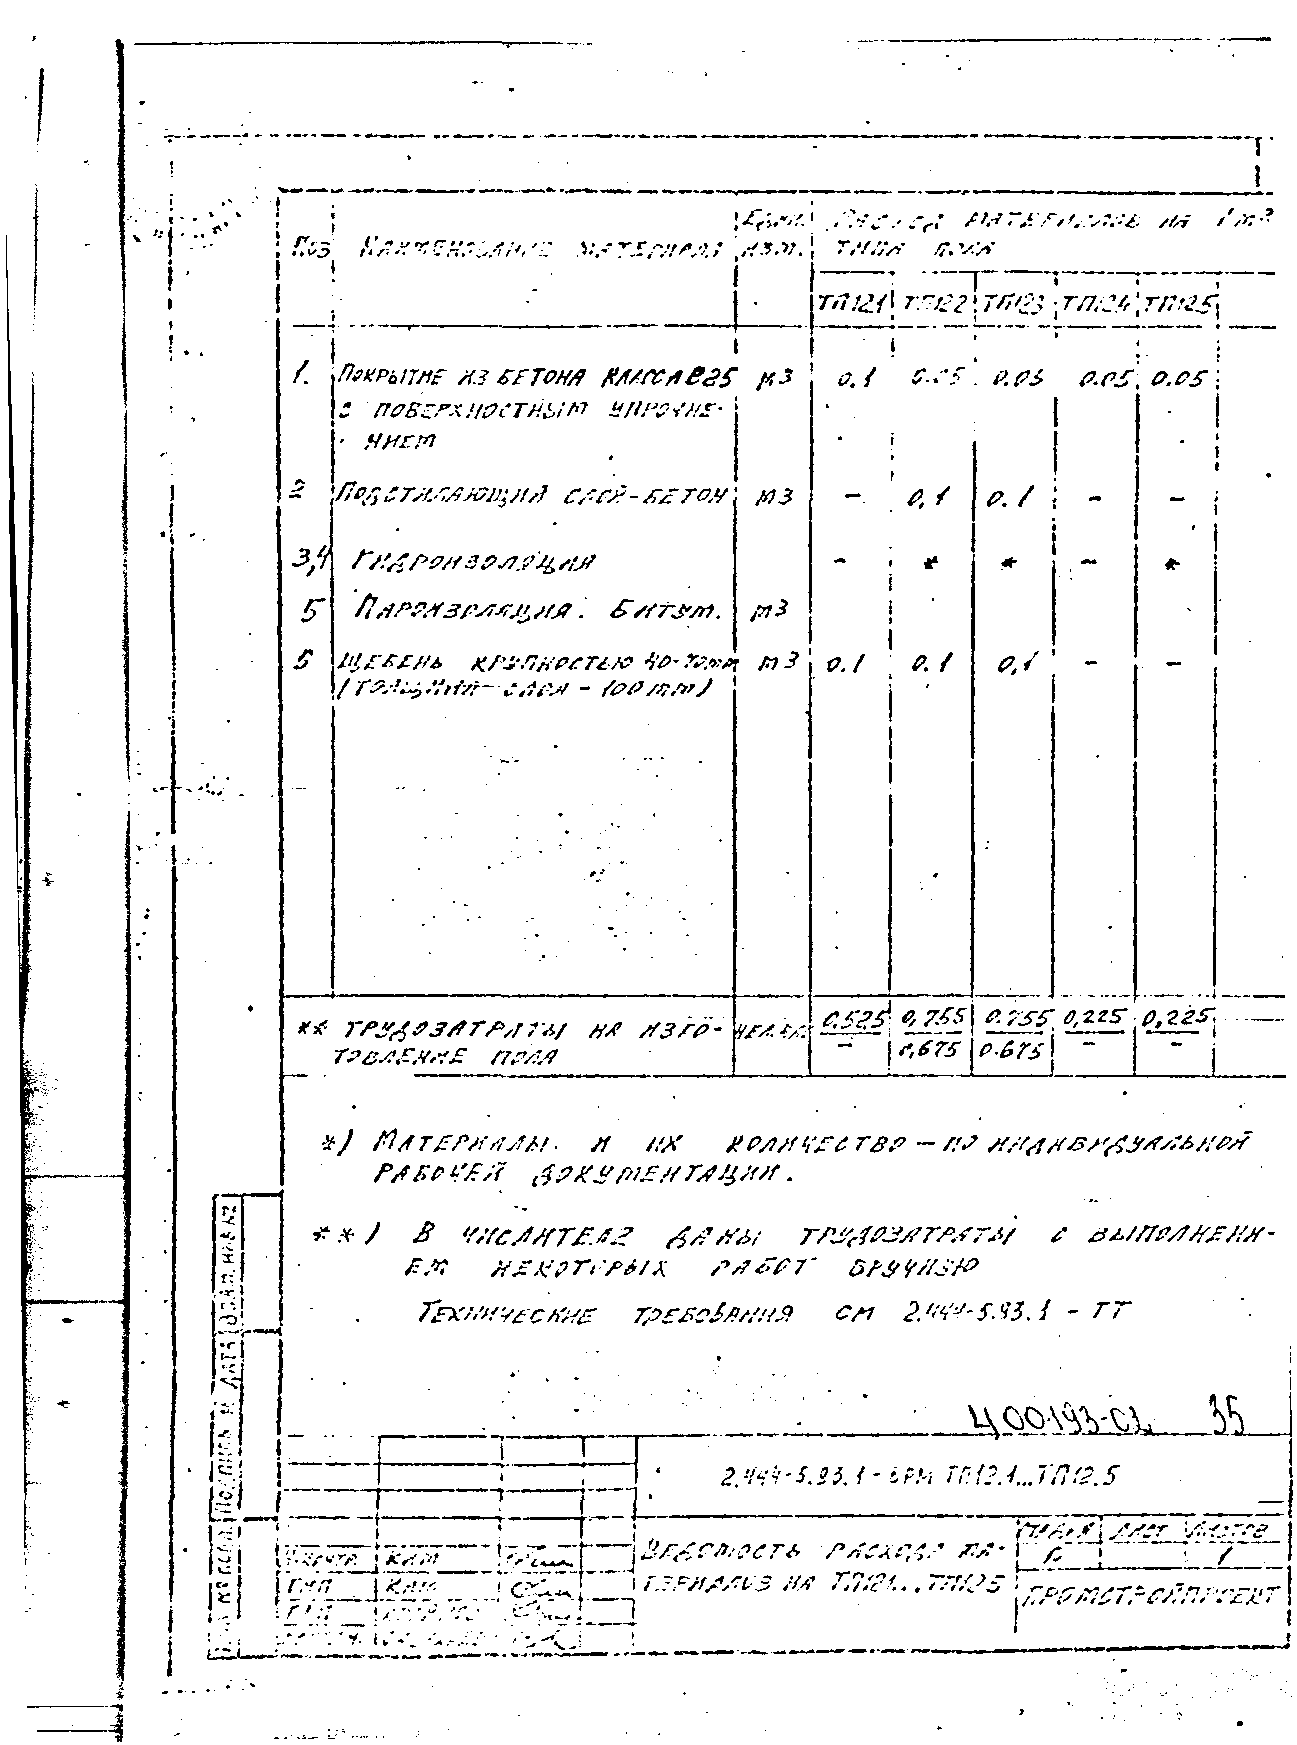 Поз Наименование материала Един. изм. Расход материалов на 1м2 типа пола
ТП12.1 ТП12.2 ТП12.3 ТП12.4 ТП12.5
1. Покрытие из бетона класса В25 м3 0.1 0.05 0.05 0.05 0.05
с поверхностным упрочне-
нием
2 Подстилающий слой-бетон м3 – 0,1 0.1 – –
3,4 Гидроизоляция – * * – *
5 Пароизоляция. Битум. м3
5 Щебень крупностью 40-70мм м3 0.1 0.1 0,1 – –
(толщина слоя – 100мм)
** Трудозатраты на изго- чел.ч 0,525 0,755 0.755 0,225 0,225
товление пола – 0,675 0.675 – –
*) Материалы и их количество – по индивидуальной
рабочей документации.
**) В числителе даны трудозатраты с выполнени-
ем некоторых работ вручную
Технические требования см 2.444-5.93.1 – ТТ
400193-02 35
2.444-5.93.1-ВРМ ТП12.1...ТП12.5
Ведомость расхода ма-
териалов на ТП12.1...ТП12.5
Стадия Лист Листов
1
Промстройпроект
ГИП
Подпись и дата Взам.инв.№